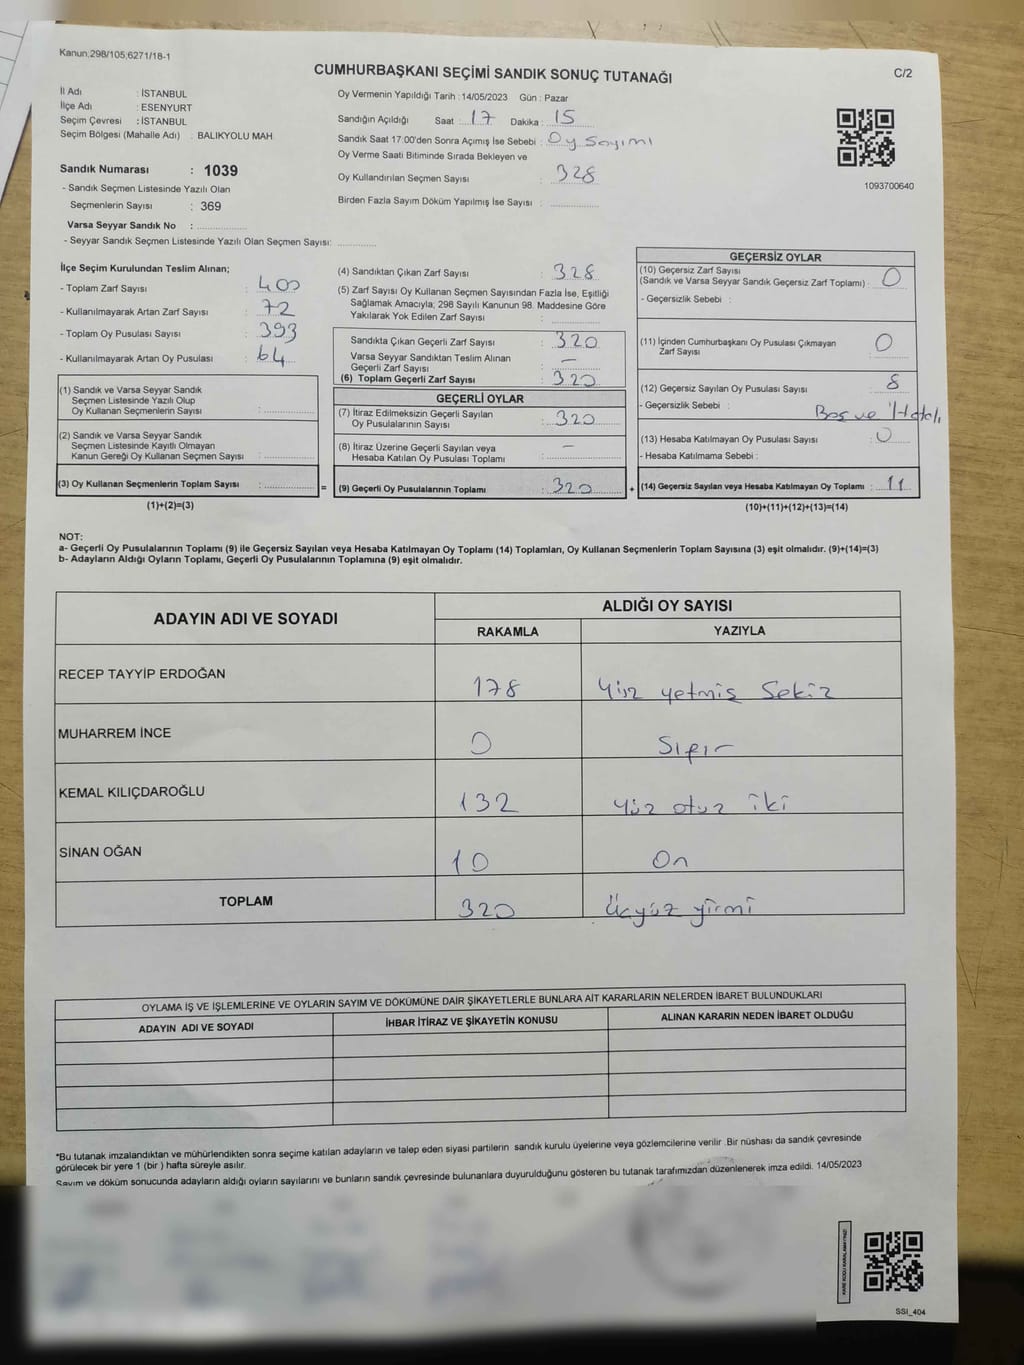 Kanun;298/105;6271/18-1
C/2
CUMHURBAŞKANI SEÇİMİ SANDIK SONUÇ TUTANAĞI
İl Adı : İSTANBUL
İlçe Adı : ESENYURT
Seçim Çevresi : İSTANBUL
Seçim Bölgesi (Mahalle Adı) : BALIKYOLU MAH.
Sandık Numarası : 1039
- Sandık Seçmen Listesinde Yazılı Olan
Seçmenlerin Sayısı : 369
Varsa Seyyar Sandık No :
- Seyyar Sandık Seçmen Listesinde Yazılı Olan Seçmen Sayısı:
Oy Vermenin Yapıldığı Tarih : 14/05/2023 Gün : Pazar
Sandığın Açıldığı Saat : 17 Dakika : 15
Sandık Saat 17:00'den Sonra Açımış İse Sebebi : Oy Sayımı
Oy Verme Saati Bitiminde Sırada Bekleyen ve
Oy Kullandırılan Seçmen Sayısı : 328
Birden Fazla Sayım Döküm Yapılmış İse Sayısı :
1093700640
İlçe Seçim Kurulundan Teslim Alınan;
- Toplam Zarf Sayısı : 400
- Kullanılmayarak Artan Zarf Sayısı : 72
- Toplam Oy Pusulası Sayısı : 393
- Kullanılmayarak Artan Oy Pusulası : 64
(1) Sandık ve Varsa Seyyar Sandık
Seçmen Listesinde Yazılı Olup
Oy Kullanan Seçmenlerin Sayısı :
(2) Sandık ve Varsa Seyyar Sandık
Seçmen Listesinde Kayıtlı Olmayan
Kanun Gereği Oy Kullanan Seçmen Sayısı :
(3) Oy Kullanan Seçmenlerin Toplam Sayısı : =
(1)+(2)=(3)
(4) Sandıktan Çıkan Zarf Sayısı : 328
(5) Zarf Sayısı Oy Kullanan Seçmen Sayısından Fazla İse, Eşitliği
Sağlamak Amacıyla; 298 Sayılı Kanunun 98. Maddesine Göre
Yakılarak Yok Edilen Zarf Sayısı :
Sandıkta Çıkan Geçerli Zarf Sayısı : 320
Varsa Seyyar Sandıktan Teslim Alınan
Geçerli Zarf Sayısı : —
(6) Toplam Geçerli Zarf Sayısı : 320
GEÇERLİ OYLAR
(7) İtiraz Edilmeksizin Geçerli Sayılan
Oy Pusulalarının Sayısı : 320
(8) İtiraz Üzerine Geçerli Sayılan veya
Hesaba Katılan Oy Pusulası Toplamı : —
(9) Geçerli Oy Pusulalarının Toplamı : 320 +
GEÇERSİZ OYLAR
(10) Geçersiz Zarf Sayısı
(Sandık ve Varsa Seyyar Sandık Geçersiz Zarf Toplamı) : 0
- Geçersizlik Sebebi :
(11) İçinden Cumhurbaşkanı Oy Pusulası Çıkmayan
Zarf Sayısı : 0
(12) Geçersiz Sayılan Oy Pusulası Sayısı : 8
- Geçersizlik Sebebi : Boş ve Hatalı
(13) Hesaba Katılmayan Oy Pusulası Sayısı : 0
- Hesaba Katılmama Sebebi :
(14) Geçersiz Sayılan veya Hesaba Katılmayan Oy Toplamı : 11
(10)+(11)+(12)+(13)=(14)
NOT:
a- Geçerli Oy Pusulalarının Toplamı (9) ile Geçersiz Sayılan veya Hesaba Katılmayan Oy Toplamı (14) Toplamları, Oy Kullanan Seçmenlerin Toplam Sayısına (3) eşit olmalıdır. (9)+(14)=(3)
b- Adayların Aldığı Oyların Toplamı, Geçerli Oy Pusulalarının Toplamına (9) eşit olmalıdır.
ADAYIN ADI VE SOYADI
ALDIĞI OY SAYISI
RAKAMLA YAZIYLA
RECEP TAYYİP ERDOĞAN 178 Yüz yetmiş Sekiz
MUHARREM İNCE 0 Sıfır
KEMAL KILIÇDAROĞLU 132 Yüz otuz iki
SİNAN OĞAN 10 On
TOPLAM 320 Üçyüz yirmi
OYLAMA İŞ VE İŞLEMLERİNE VE OYLARIN SAYIM VE DÖKÜMÜNE DAİR ŞİKAYETLERLE BUNLARA AİT KARARLARIN NELERDEN İBARET BULUNDUKLARI
ADAYIN ADI VE SOYADI İHBAR İTİRAZ VE ŞİKAYETİN KONUSU ALINAN KARARIN NEDEN İBARET OLDUĞU
*Bu tutanak imzalandıktan ve mühürlendikten sonra seçime katılan adayların ve talep eden siyasi partilerin sandık kurulu üyelerine veya gözlemcilerine verilir .Bir nüshası da sandık çevresinde
görülecek bir yere 1 (bir ) hafta süreyle asılır.
Sayım ve döküm sonucunda adayların aldığı oyların sayılarını ve bunların sandık çevresinde bulunanlara duyurulduğunu gösteren bu tutanak tarafımızdan düzenlenerek imza edildi. 14/05/2023
KARE KODU KARALAMAYINIZ!
SSI_404